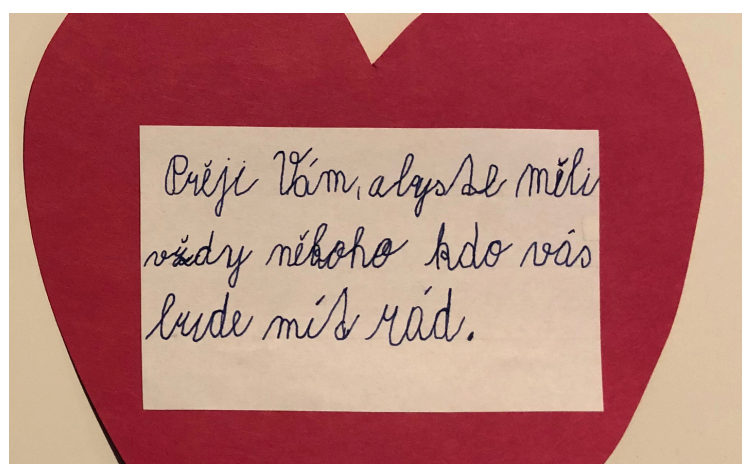 Přěji Vám, abyste měli
vždy někoho kdo vás
bude mít rád.